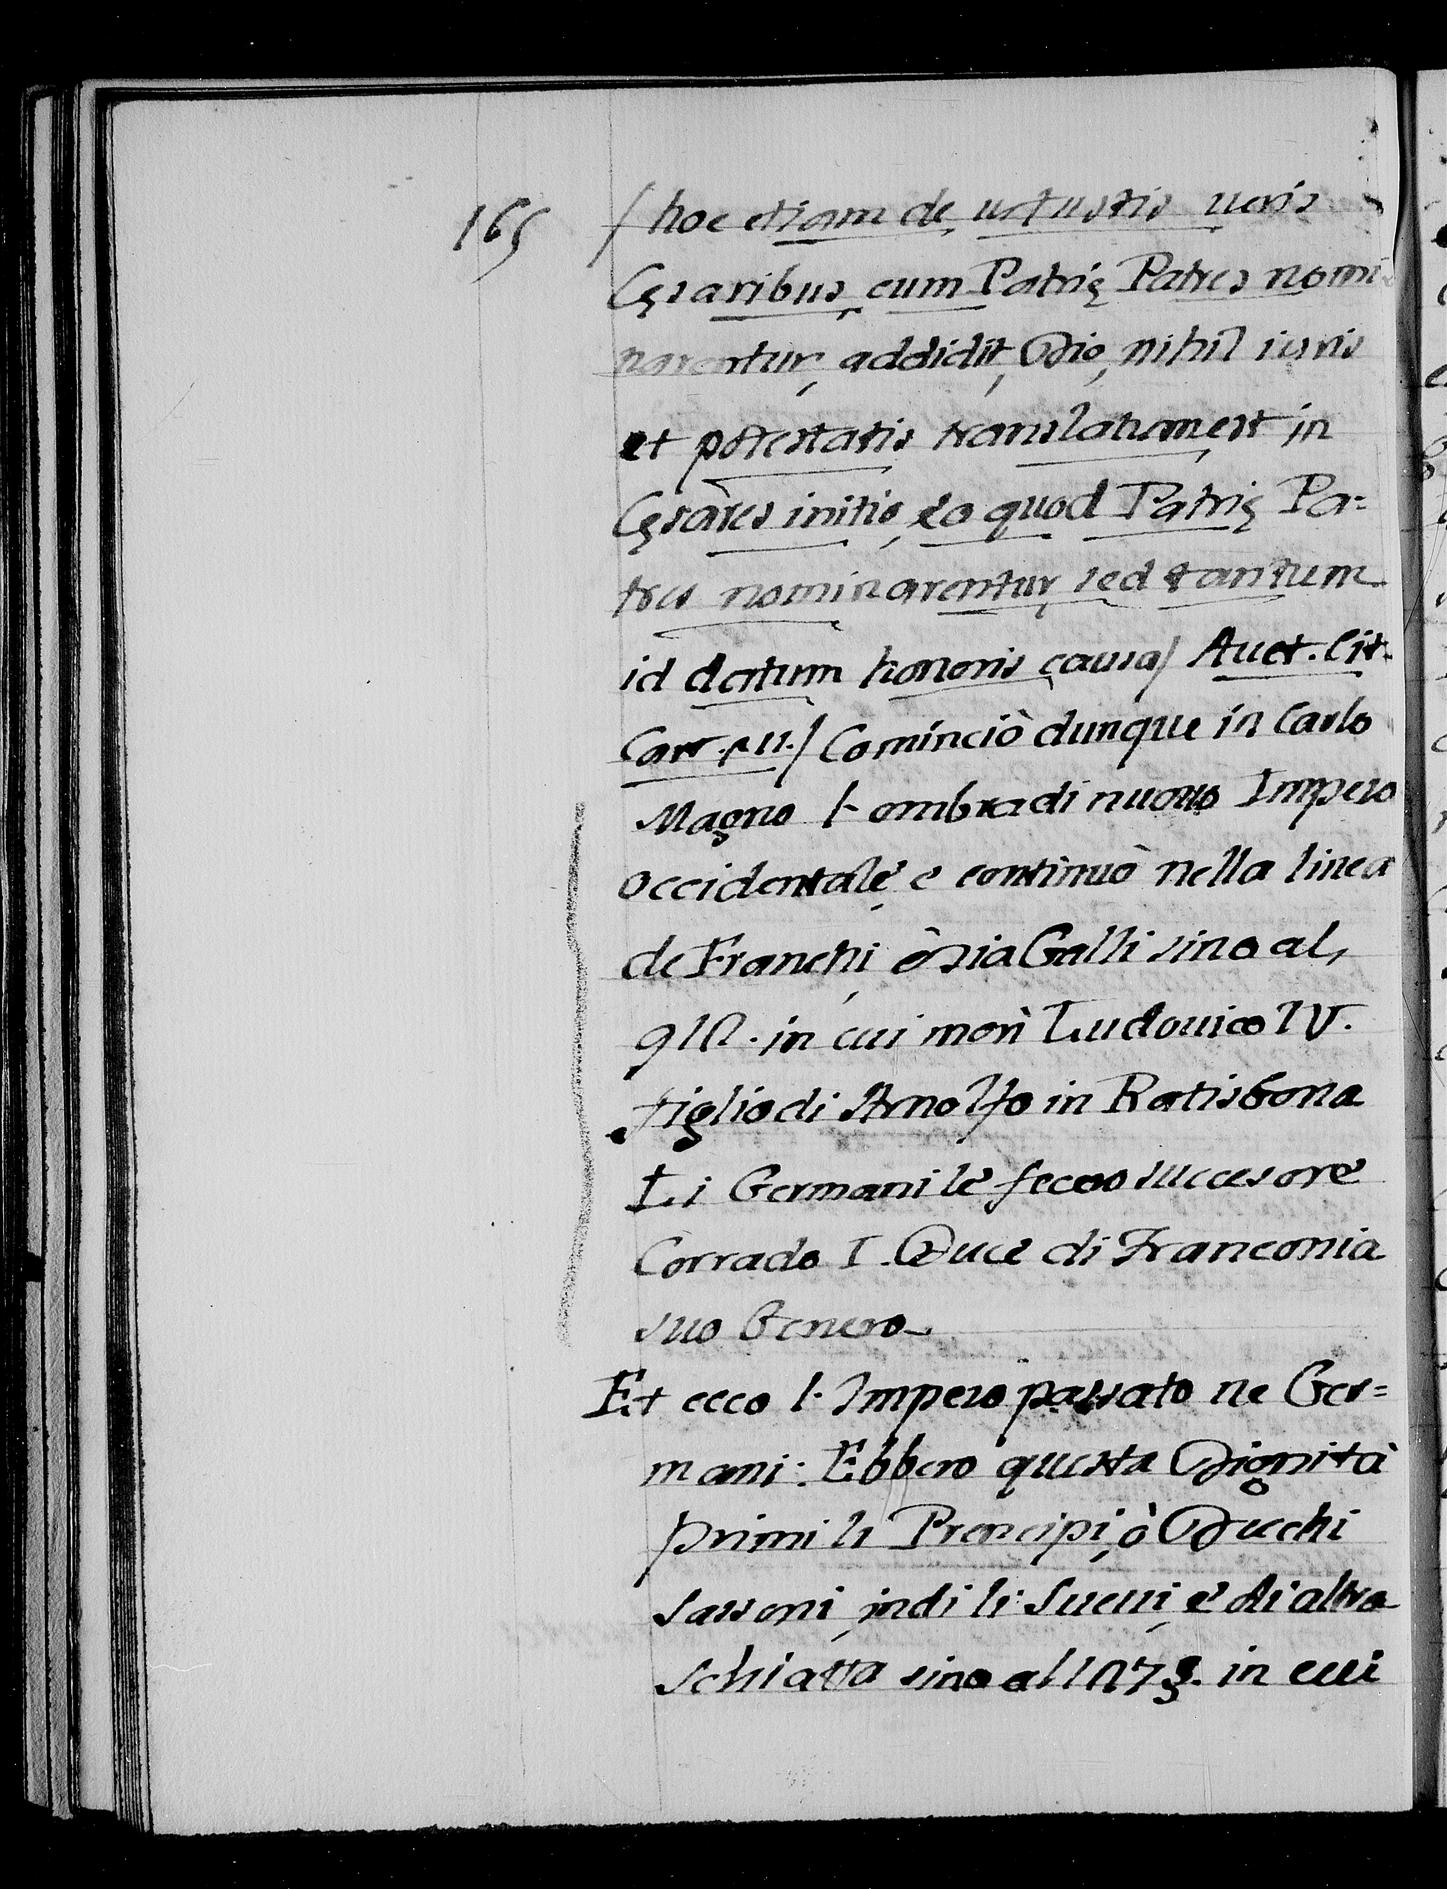 165
/ hoc etiam de uetustis ueris
Cęsaribus, cum Patrię Patres nomi-
narentur, addidit Dio, nihil iuris
et potestatis translatum est in
Cęsares initio, eo quod Patrię Pa=
tres nominarentur, sed tantum
id datum honoris causa/ Auct. cit.
Car. /Cominciò dunque in Carlo
Magno l'ombra di nuouo Impero
occidentale, e continuò nella linea
de Franchi, ò sia Galli sino al,
912. in cui morì Ludouico IV.
figlio di Arnolfo in Ratisbona
Li Germani le fecero succesore
Corrado I. Duce di Franconia
suo Genero
Et ecco l'Impero passato ne Ger=
mani: Ebbero questa Dignità
primi li Prencipi, ò Ducchi
Sassoni, indi li Sueui, e di altra
Schiatta sino al 1273. in cui